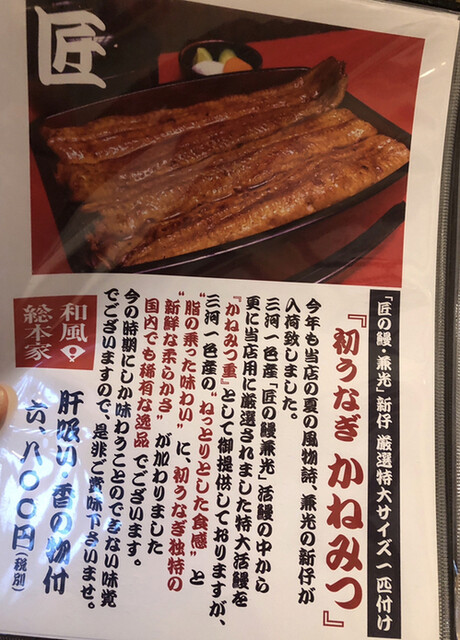 匠
「匠の鰻・兼光」新仔 厳選特大サイズ一匹付け
『初うなぎ かねみつ』
今年も当店の夏の風物詩、兼光の新仔が
入荷致しました。
三河一色産「匠の鰻兼光」活鰻の中から
更に当店用に厳選されました特大活鰻を
『かねみつ重』として御提供しておりますが、
三河一色産の〝ねっとりとした食感〟と
〝脂の乗った味わい〟に、初うなぎ独特の
〝新鮮な柔らかさ〟が加わりました
国内でも稀有な逸品でございます。
今の時期にしか味わうことのできない味覚
でございますので、是非ご賞味下さいませ。
和風
総本家
肝吸い・香の物付
六、八〇〇円(税別)